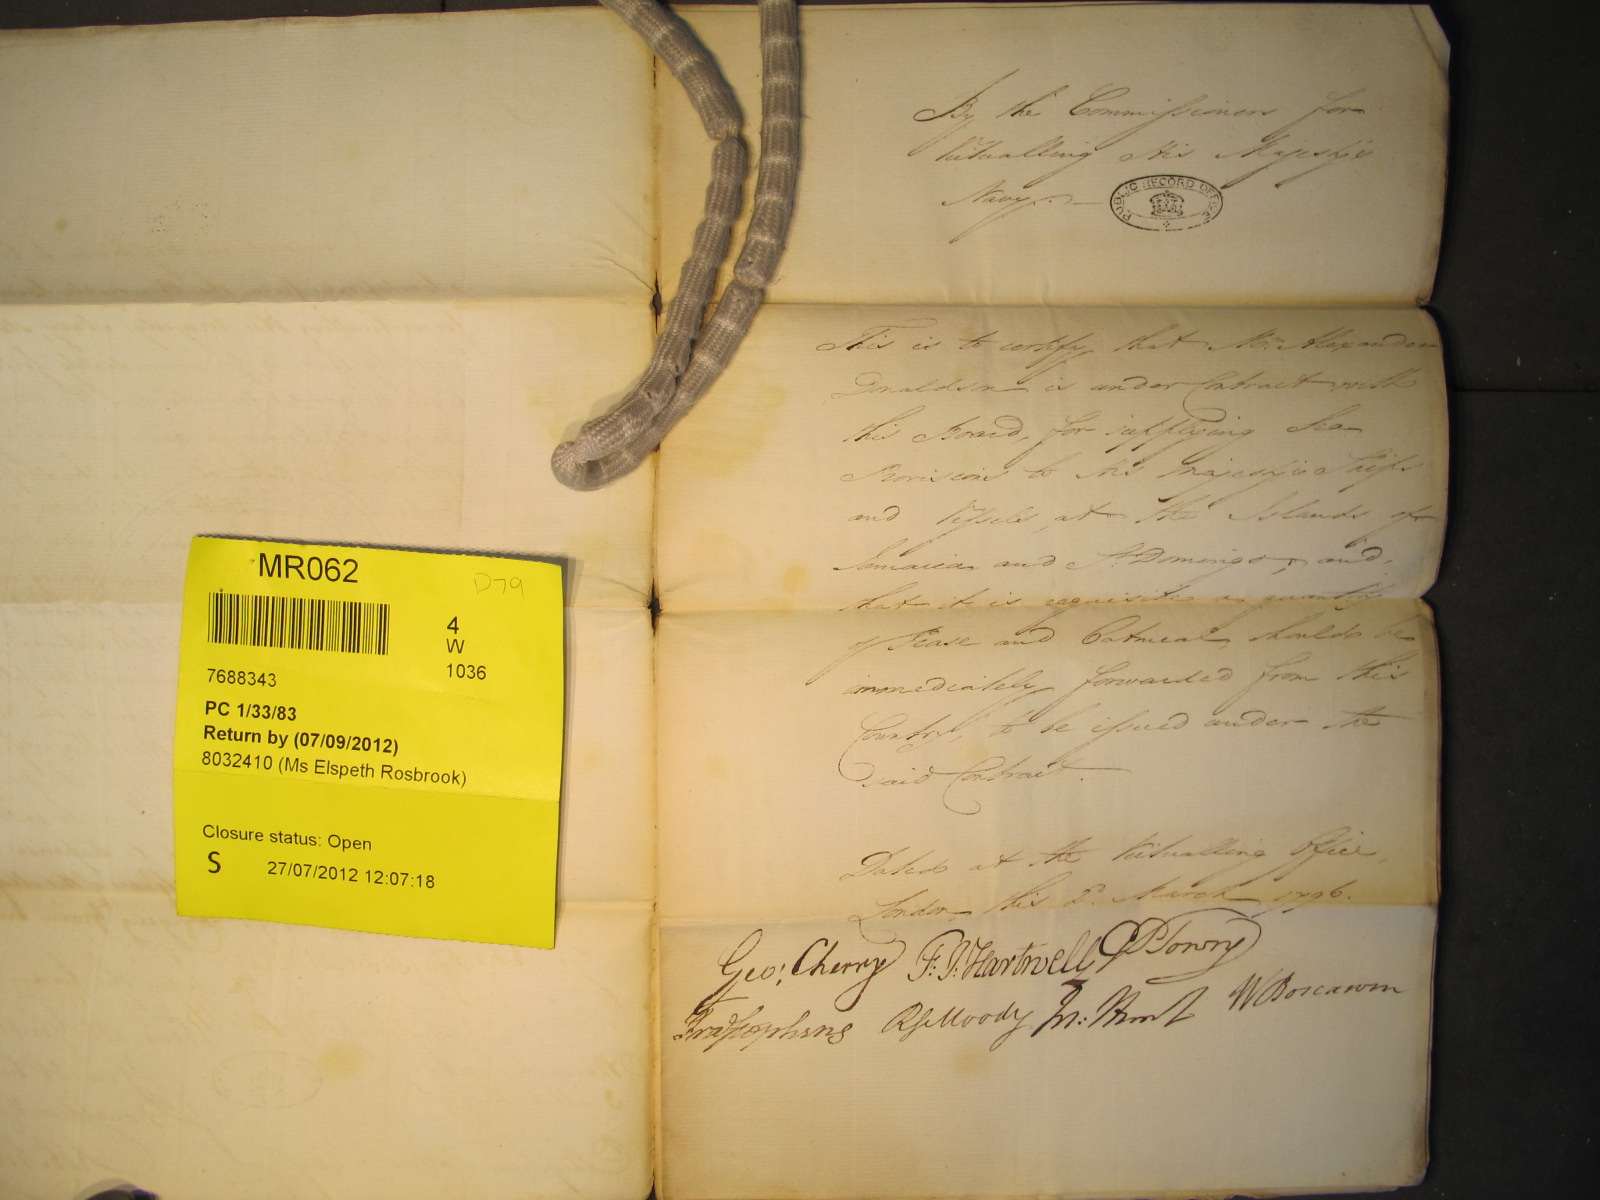 By the Commissioners for
Victualling His Majesty's
Navy.
PUBLIC RECORD OFFICE
This is to certify that Mr. Alexander
Donaldson is under Contract with
this Board, for supplying Sea
Provisions to His Majesty's Ships
and Vessels at the Islands of
Jamaica and St. Domingo, and,
that it is requisite a quantity
of Pease and Oatmeal should be
immediately forwarded from this
Country, to be issued under the
said Contract.
Dated at the Victualling Office,
London this March 1796.
Geo: Cherry F: J: Hartwell GP Towry
Fra Stephens Moody W Boscawen
MR062
D79
4
W
1036
7688343
PC 1/33/83
Return by (07/09/2012)
8032410 (Ms Elspeth Rosbrook)
Closure status: Open
S 27/07/2012 12:07:18